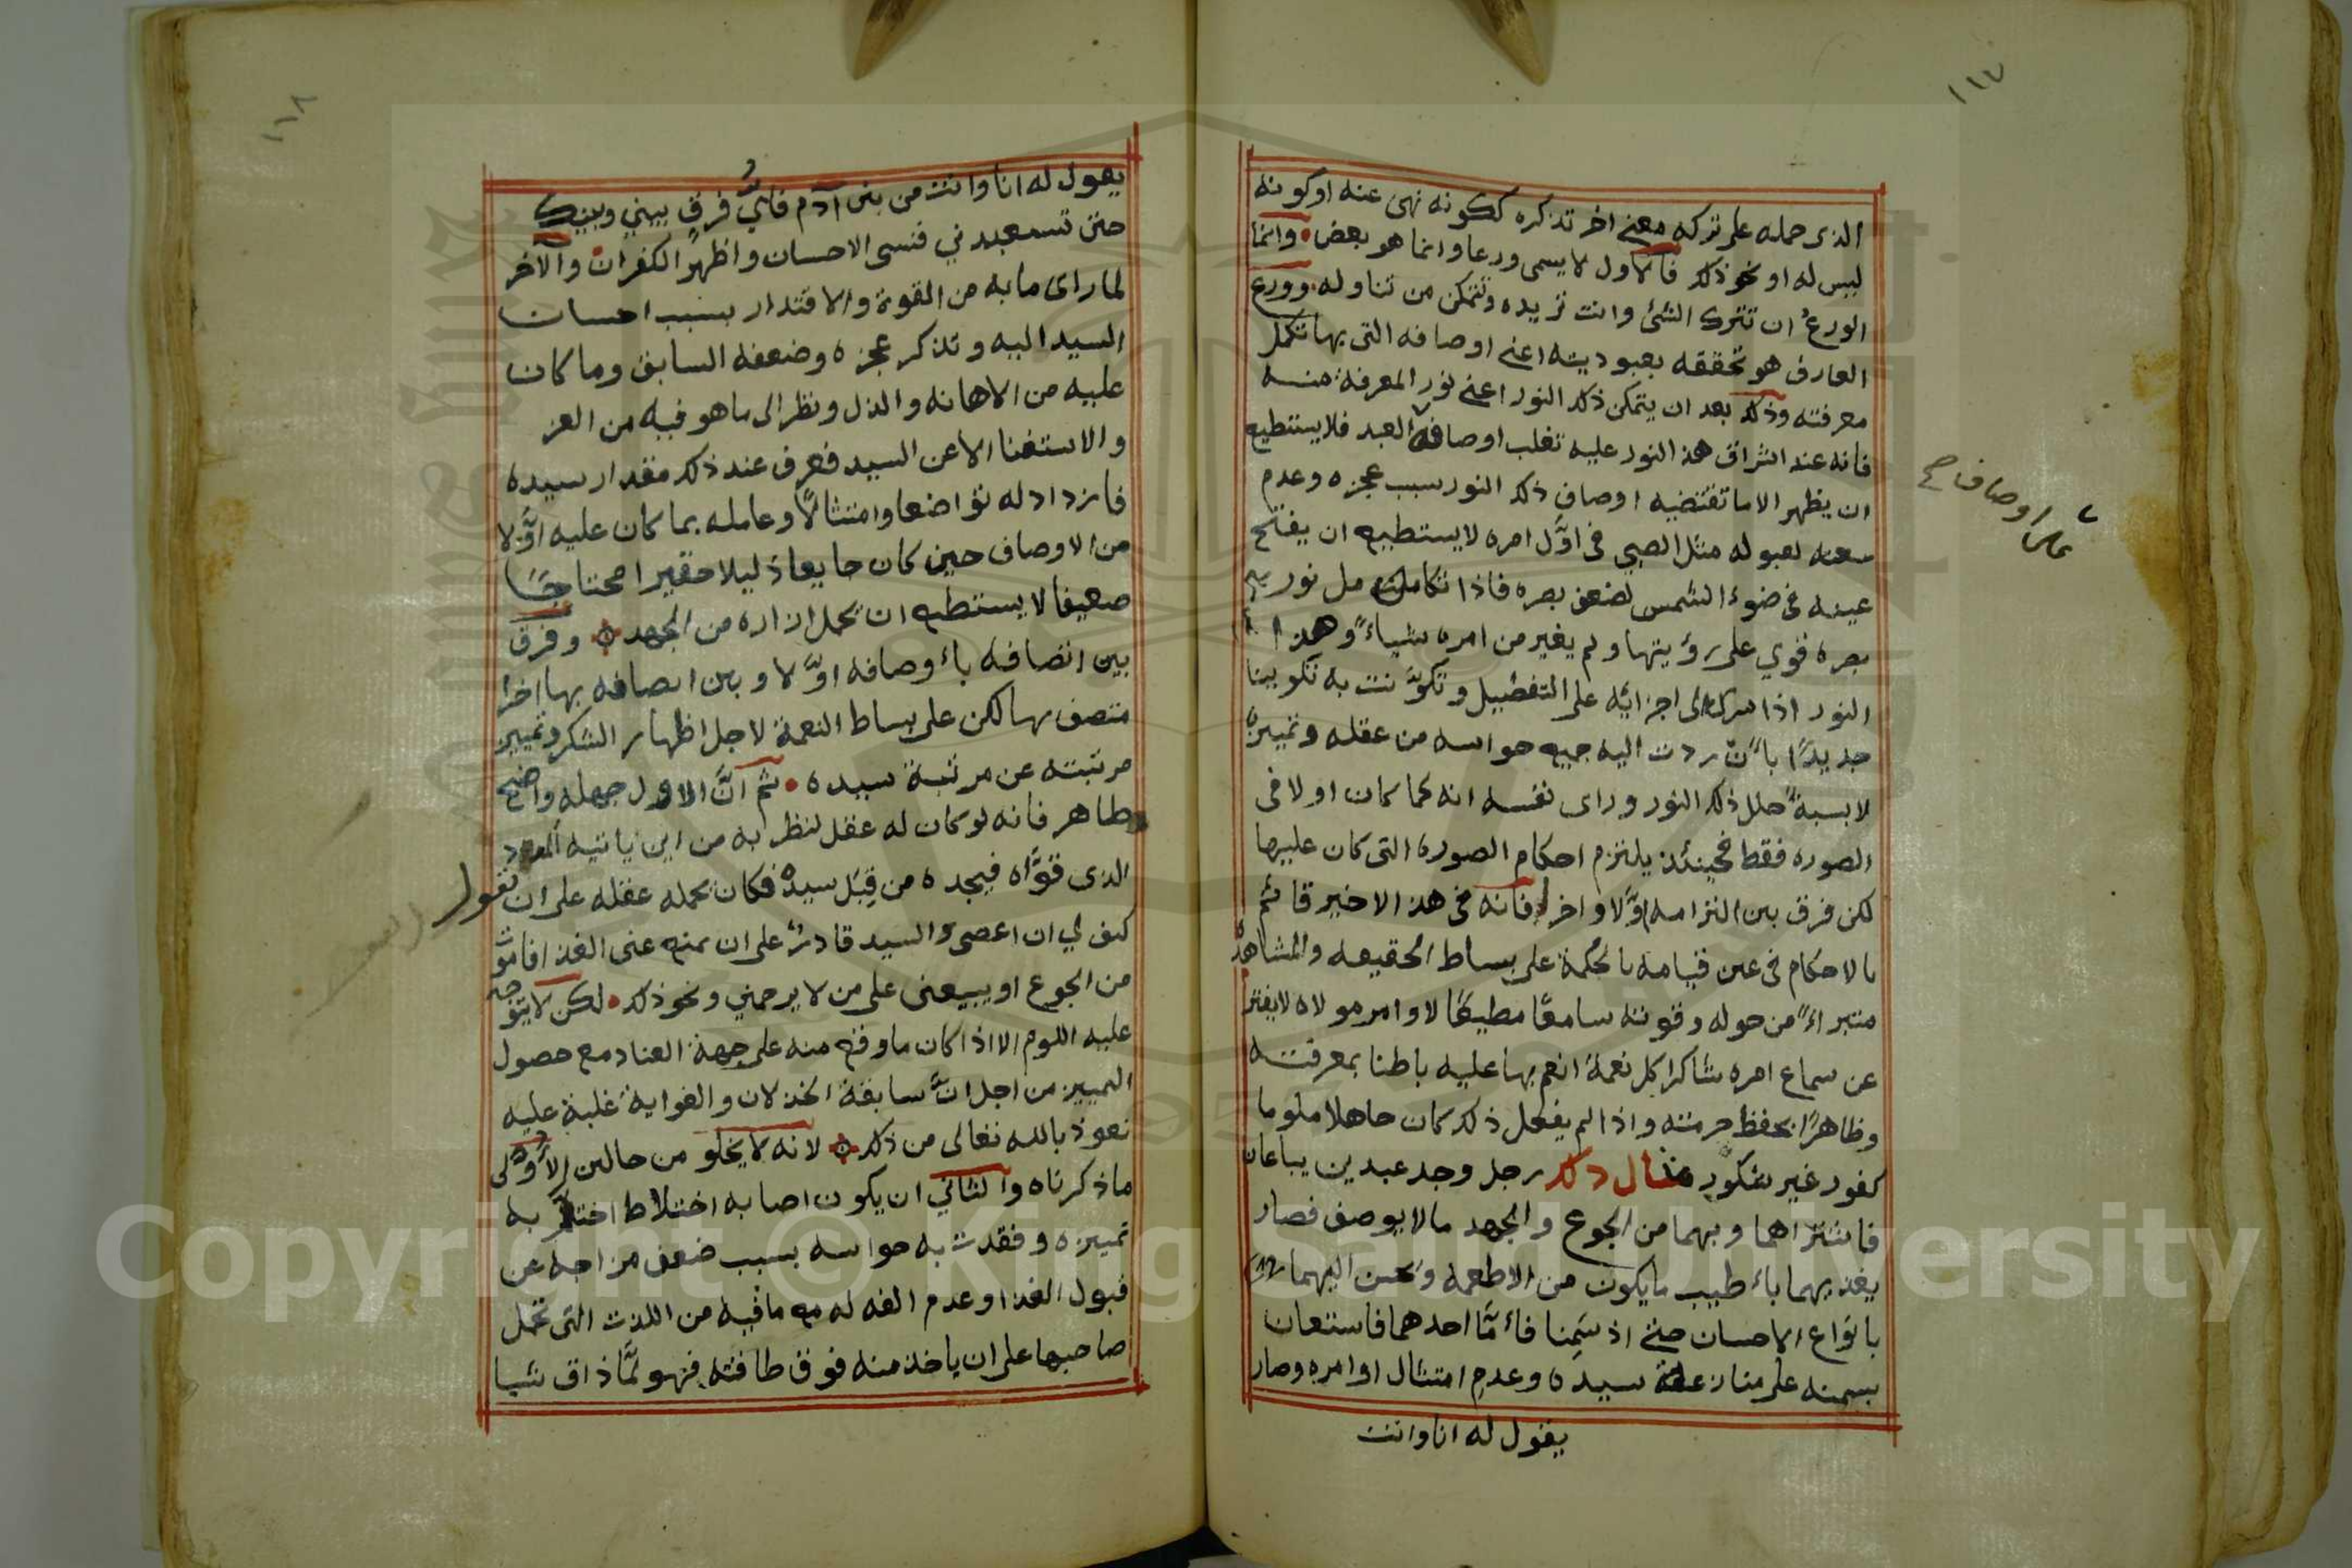 ١١٧
الذى حمله على تركه معنى اخر تذكره ككونه نهى عنه او كونه
ليس له او نحو ذلك فالاول لا يسمى ورعا وانما هو بعض وانما
الورعُ ان تترك الشئ وانت تريده وتتمكن من تناوله وورع
العارف هو تحققه بعبوديته اعنى اوصافه التى بها تكمل
معرفته وذلك بعد ان يتمكن ذلك النور اعنى نور المعرفة منه
فانه عند اشراق هذ النور عليه تغلب اوصافه العبد فلا يستطيع
على اوصاف صح
ان يظهر الا ما تقتضيه اوصاف ذلك النور سبب عجزه وعدم
سعته لقبوله مثل الصبي فى اوَّل امره لا يستطيع ان يفتح
عينه فى ضوء الشمس لضعف بصره فاذا تكاملت نور
بصره قوي على رؤيتها ولم يغير من امره شياءً وهذا
النور اذا سرى الى اجزائه على التفصيل وتكوَّنت به تكوينا
جديدًا باَنّ ردت اليه جميع حواسه من عقله وتمييزه
لابسةً حلل ذلك النور وراى نفسه انه كما كان اولا فى
الصوره فقط فحينئذ يلتزم احكام الصوره التى كان عليها
لكن فرق بين التزامه اوَّلا واخرا فانه فى هذ الاخير قائم
بالاحكام فى عين قيامه بالحكمة على بساط الحقيقه والمشاهدة
متبراءً من حوله وقوته سامعًا مطيعًا لاوامر مولاه لا يفتر
عن سماع امره شاكرا كل نعمة انعم بها عليه باطنا بمعرفته
وظاهرًا بحفظ حرمته واذا لم يفعل ذلك كان جاهلا ملوما
كفور غير شكور مثال ذلك رجل وجد عبدين يباعان
فاشتراهما وبهما من الجوع والجهد مالا يوصف فصار
يغذيهما باءطيب ما يكون من الاطعمه وَيحسن اليهما
بانواع الاحسان حتى اذ سَمِنا فاءمَّا احدهما فاستعان
بسمنه على منازعة سيده وعدمِ امتثال اوامره وصار
يقول له انا وانت
١١٨
يقول له انا وانت من بنى آدم فايُّ فرقٍ بيني وبينك
حتى تستعبدني فنسى الاحسان واظهر الكفران والآخر
لما راى ما به من القوة والاقتدار بسبب احسان
السيد اليه وتذكر عجزه وضعفه السابق وما كان
عليه من الاهانه والذل ونظر الى ما هو فيه من العز
والاستغنا الا عن السيد فعرف عند ذلك مقدار سيده
فازداد له تواضعا وامتثالًا وعامله بما كان عليه اوَّلا
من الاوصاف حين كان جايعا ذليلا حقيرا محتاجًا
ضعيفا لا يستطيع ان يحمل ازاره من الجهد وفرق
بين اتصافه باءوصافه اوَّلا وبين اتصافه بها اخرا
متصف بها لكن على بساط النعمة لاجل اظهار الشكر وتمييز
مرتبته عن مرتبة سيده ثم انَّ الاول جهله واضح
ظاهر فانه لو كان له عقل لنظر به من اين ياتيه
الذى قوَّاه فيجده من قِبَل سيده فكان يحمله عقله على ان نقول
كيف لي ان اعصى والسيد قادرٌ على ان يمنع عنى الغذ افاموت
من الجوع او يبيعنى على من لا يرحمني ونحو ذلك لكن لا يتوجه
عليه اللوم الا اذا كان ما وقع منه على جهة العناد مع حصول
التمييز من اجل انَّ سابقة الخذلان والغواية غلبة عليه
نعوذ بالله تعالى من ذلك لانه لا يخلو من حالين الاوَّلى
ما ذكرناه والثاني ان يكون اصابه اختلاط اختل به
تمييزه وفقدت به حواسه بسبب ضعف مزاجه عن
قبول الغذ او عدم الفه له مع ما فيه من اللذت التى تحمل
صاحبها على ان ياخذ منه فوق طاقته فهو لمَّا ذاق شيا
Copyright © King Saud University